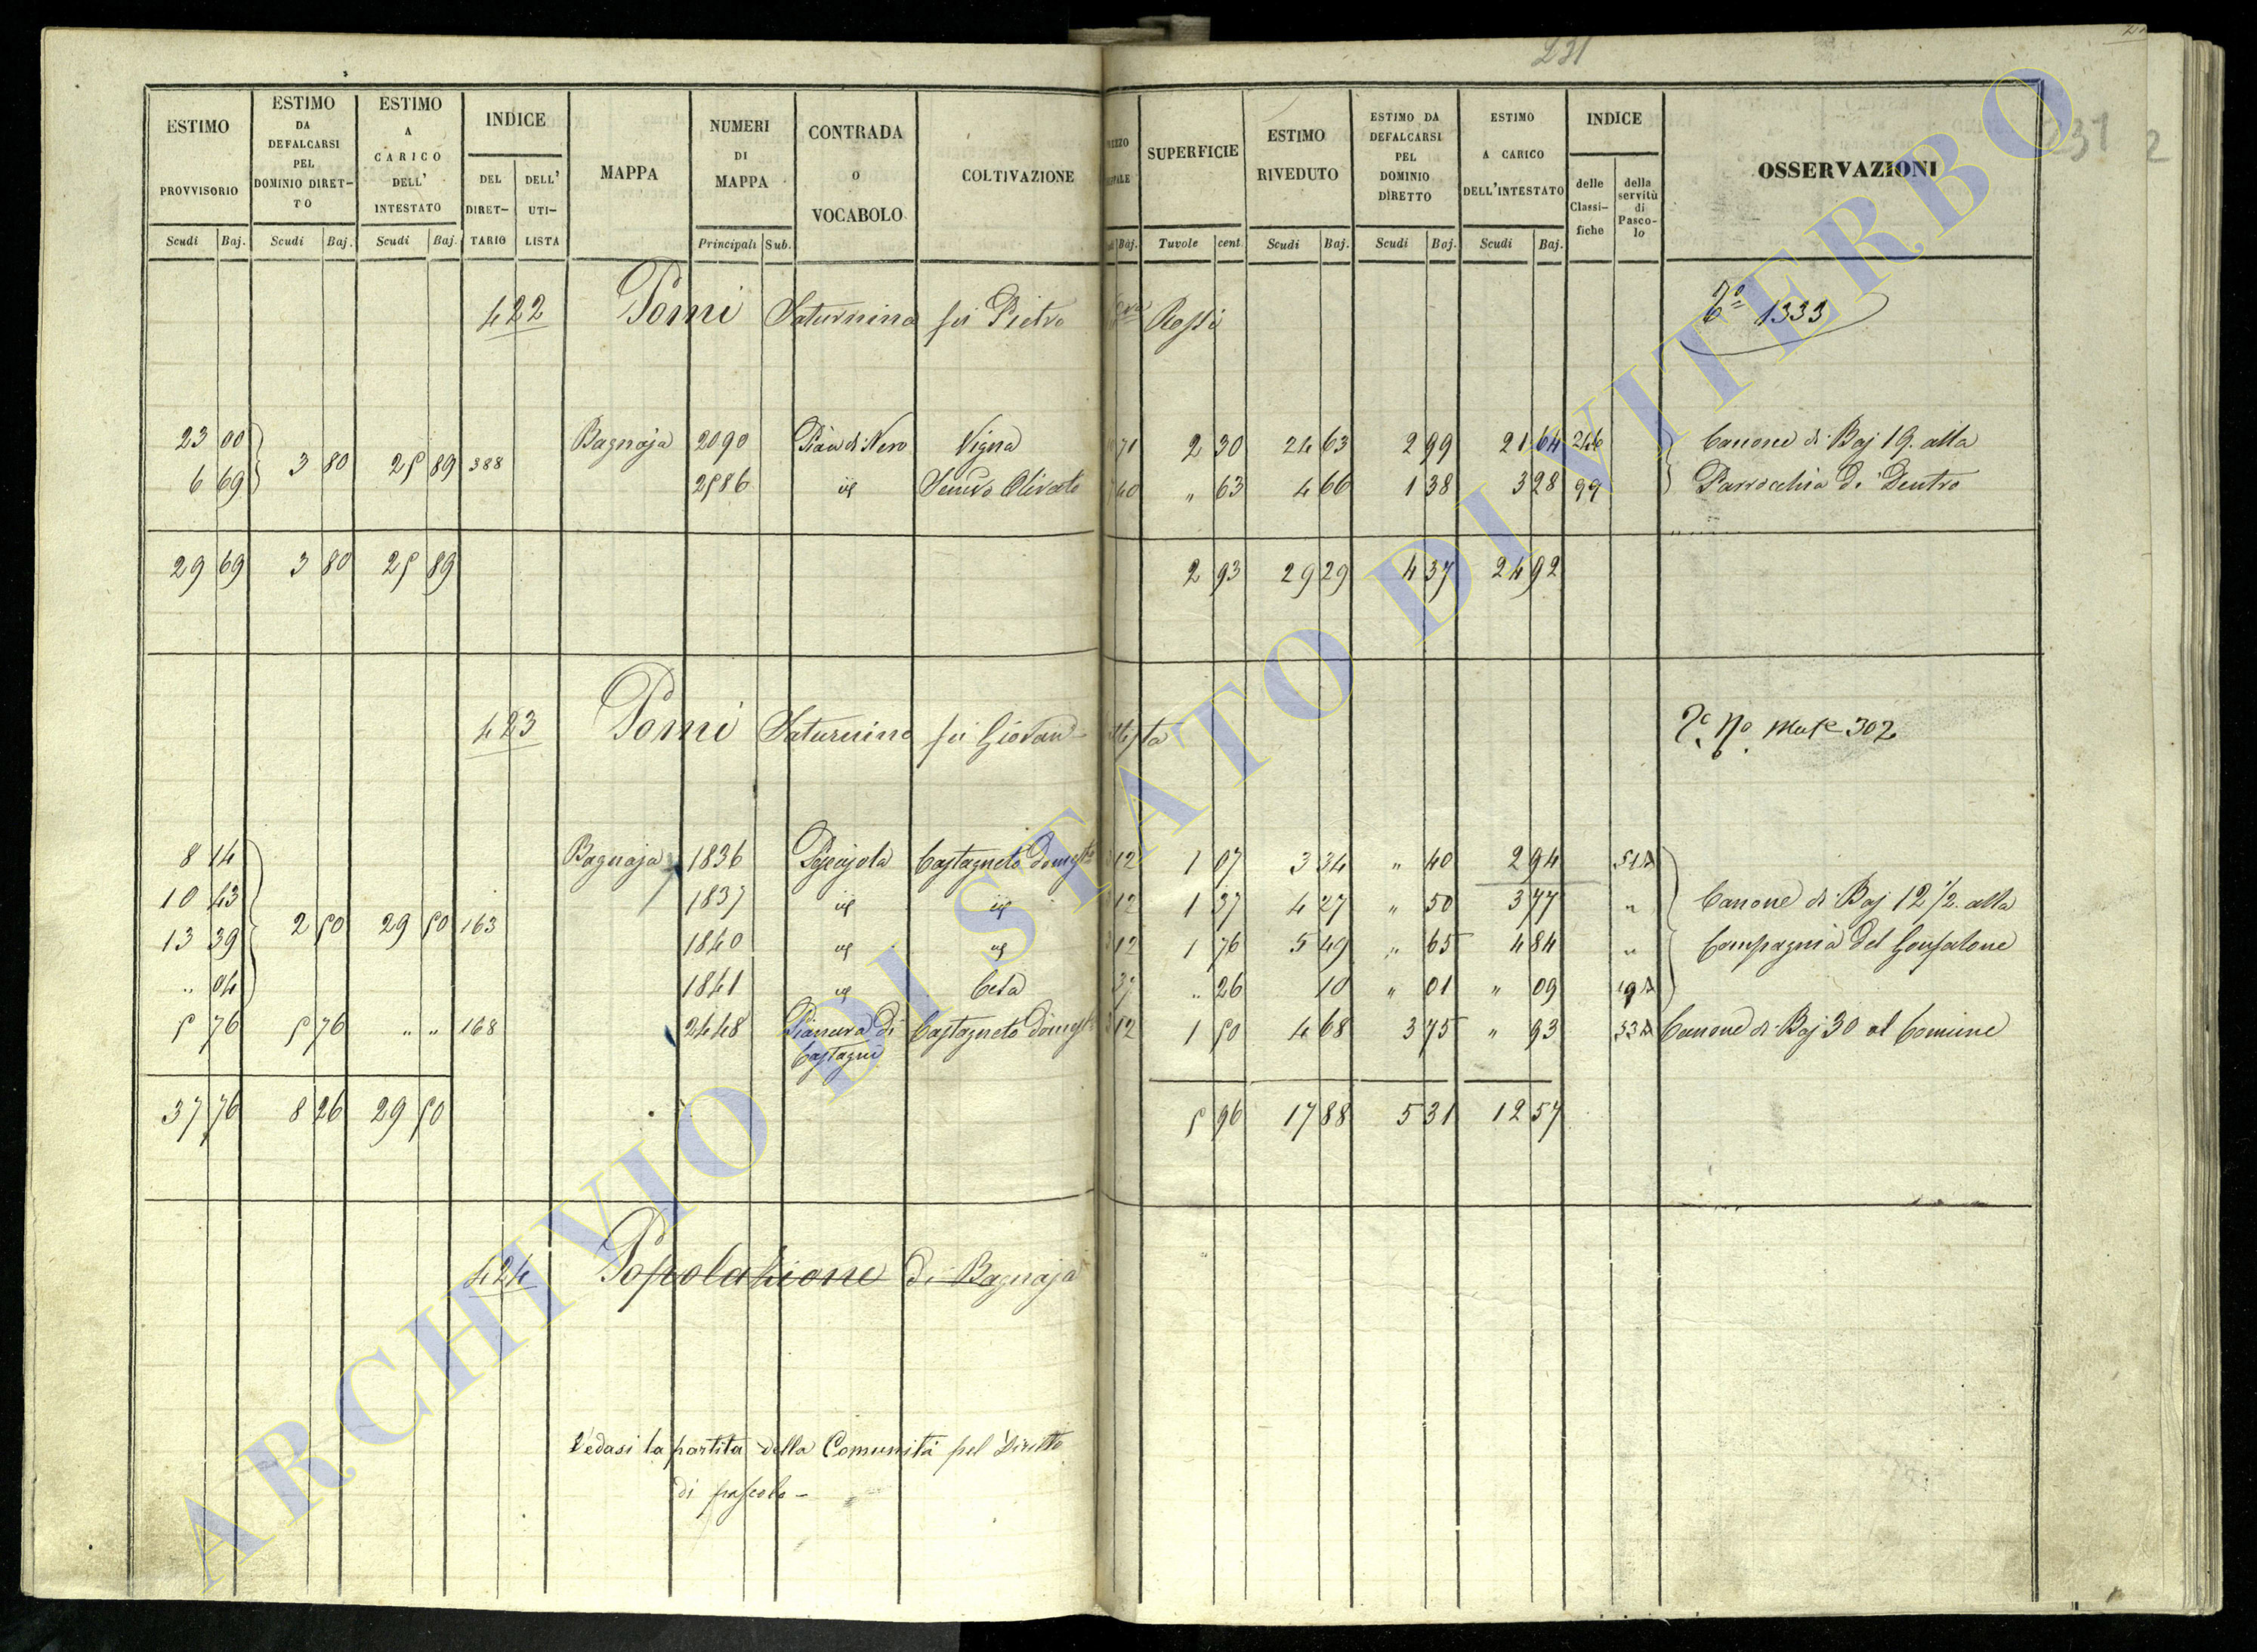 231
231
2
ESTIMO PROVVISORIO
ESTIMO DA DEFALCARSI PEL DOMINIO DIRET-TO
ESTIMO A CARICO DELL' INTESTATO
INDICE
DEL DIRET-TARIO
DELL' UTI-LISTA
MAPPA
NUMERI DI MAPPA
CONTRADA O VOCABOLO
COLTIVAZIONE
SUPERFICIE
ESTIMO RIVEDUTO
ESTIMO DA DEFALCARSI PEL DOMINIO DIRETTO
ESTIMO A CARICO DELL'INTESTATO
INDICE
delle Classi-fiche
della servitù di Pasco-lo
OSSERVAZIONI
Scudi Baj. Scudi Baj. Scudi Baj. Principali Sub. Baj. Tavole cent. Scudi Baj. Scudi Baj. Scudi Baj.
422 Pomi Saturnina fu Pietro Rossi 1333
23 00 3 80 25 89 388 Bagnaja 2090 Pian di Nero Vigna 71 2 30 24 63 2 99 21 64 246 Canone di Baj 19. alla
6 69 2586 id Semvo Olivato 40 " 63 4 66 1 38 3 28 99 Parrocchia di Dentro
29 69 3 80 25 89 2 93 29 29 4 37 24 92
423 Pomi Saturnino fu Giovan Bttista 302
8 14 Bagnaja 1836 Castagneto Domesto 12 1 07 3 34 " 40 2 94
10 43 1837 id id 12 1 37 4 27 " 50 3 77 " Canone di Baj 12 1/2. alla
13 39 2 50 29 50 163 1840 id id 12 1 76 5 49 " 65 4 84 " Compagnia del Gonfalone
" 04 1841 id Cesa 37 " 26 10 " 01 " 09
5 76 5 76 " " 168 2448 Pianura di Castagni Castagneto Domesto 12 1 50 4 68 3 75 " 93 Canone di Baj 30 al Comune
37 76 8 26 29 50 5 96 17 88 5 31 12 57
424 Popolazione di Bagnaja
Vedasi la partita della Comunità pel Diritto
di pascolo -
ARCHIVIO DI STATO DI VITERBO